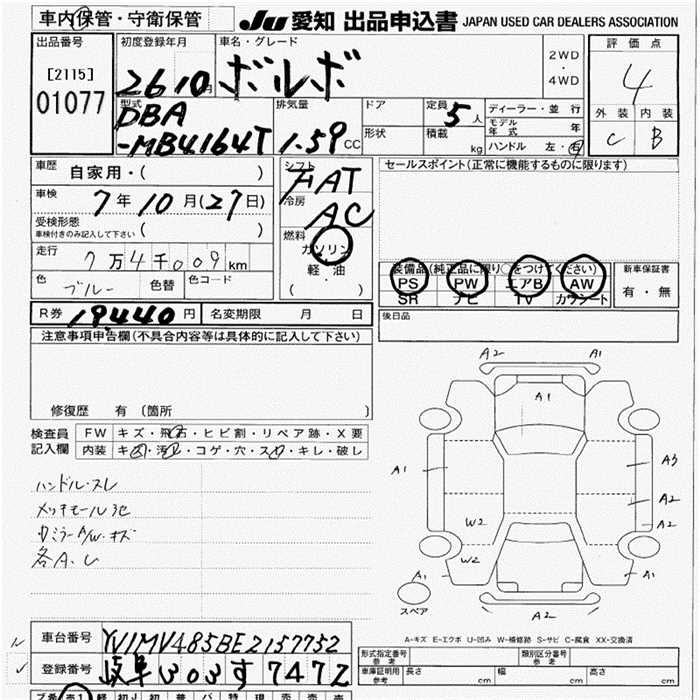 車内保管・守衛保管 JU 愛知 出品申込書 JAPAN USED CAR DEALERS ASSOCIATION
出品番号 初度登録年月 車名・グレード 評価点
[2115] 26 10月 ボルボ 2WD・4WD 4
01077
型式 排気量 ドア 定員 5人 ディーラー・並行 外装 内装
DBA 形状 積載 kg モデル年式 年 C B
-MB4164T 1.59CC ハンドル 左・右
車歴 自家用・( ) シフト FAT セールスポイント(正常に機能するものに限ります)
車検 7年10月(27日) 冷房 AC
受検形態 ( )
車検付きのみ記入して下さい
燃料 ガソリン
走行 7万4千009km 軽・油
装備品(純正品に限り○をつけてください) 新車保証書
色 ブルー 色替 色コード ( ・ )
PS PW エアB AW 有・無
SR ナビ TV カワシート
R券 19,440円 名変期限 月 日 後日品
注意事項申告欄(不具合内容等は具体的に記入して下さい)
修復歴 有 〔箇所 〕
検査員 FW キズ・飛石・ヒビ割・リペア跡・X要
記入欄 内装 キズ・汚レ・コゲ・穴・スレ・キレ・破レ
ハンドル・スレ
メッキモール
ミラーA/W・キズ
各A.U
A2 A1
A1
A1 A3
A2
W2 A2
W2
A1 A1
スペア A2
A-キズ E-エクボ U-凹み W-補修跡 S-サビ C-腐食 XX-交換済
車台番号 YV1MV485BE2157752
登録番号 岐阜303す7472
形式指定番号 参考 類別区分番号 参考
車庫証明用 参考 長さ cm 幅 cm 高さ cm